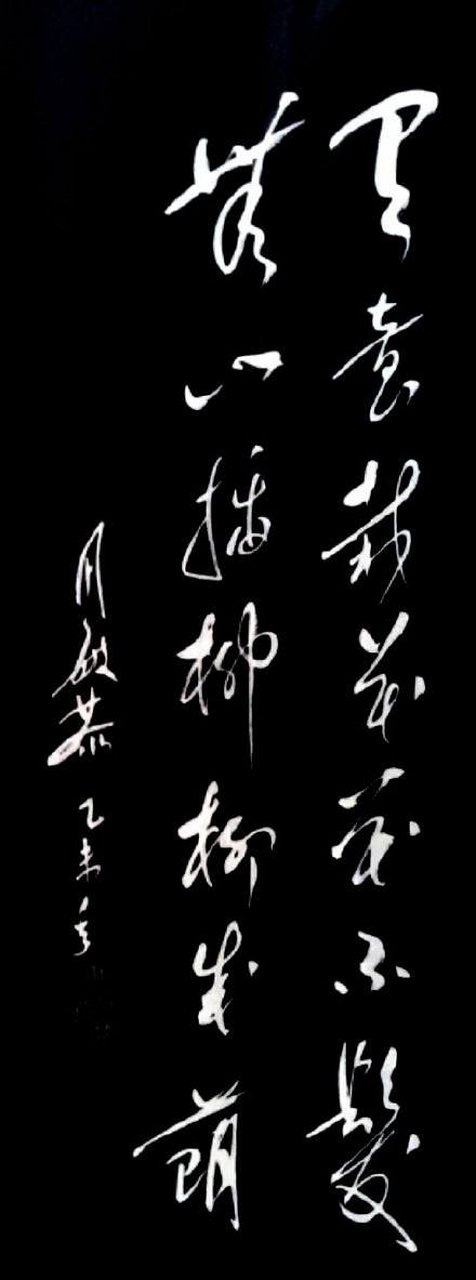 有意栽花花不髮
無心插柳柳成荫
周敏恭 乙未年